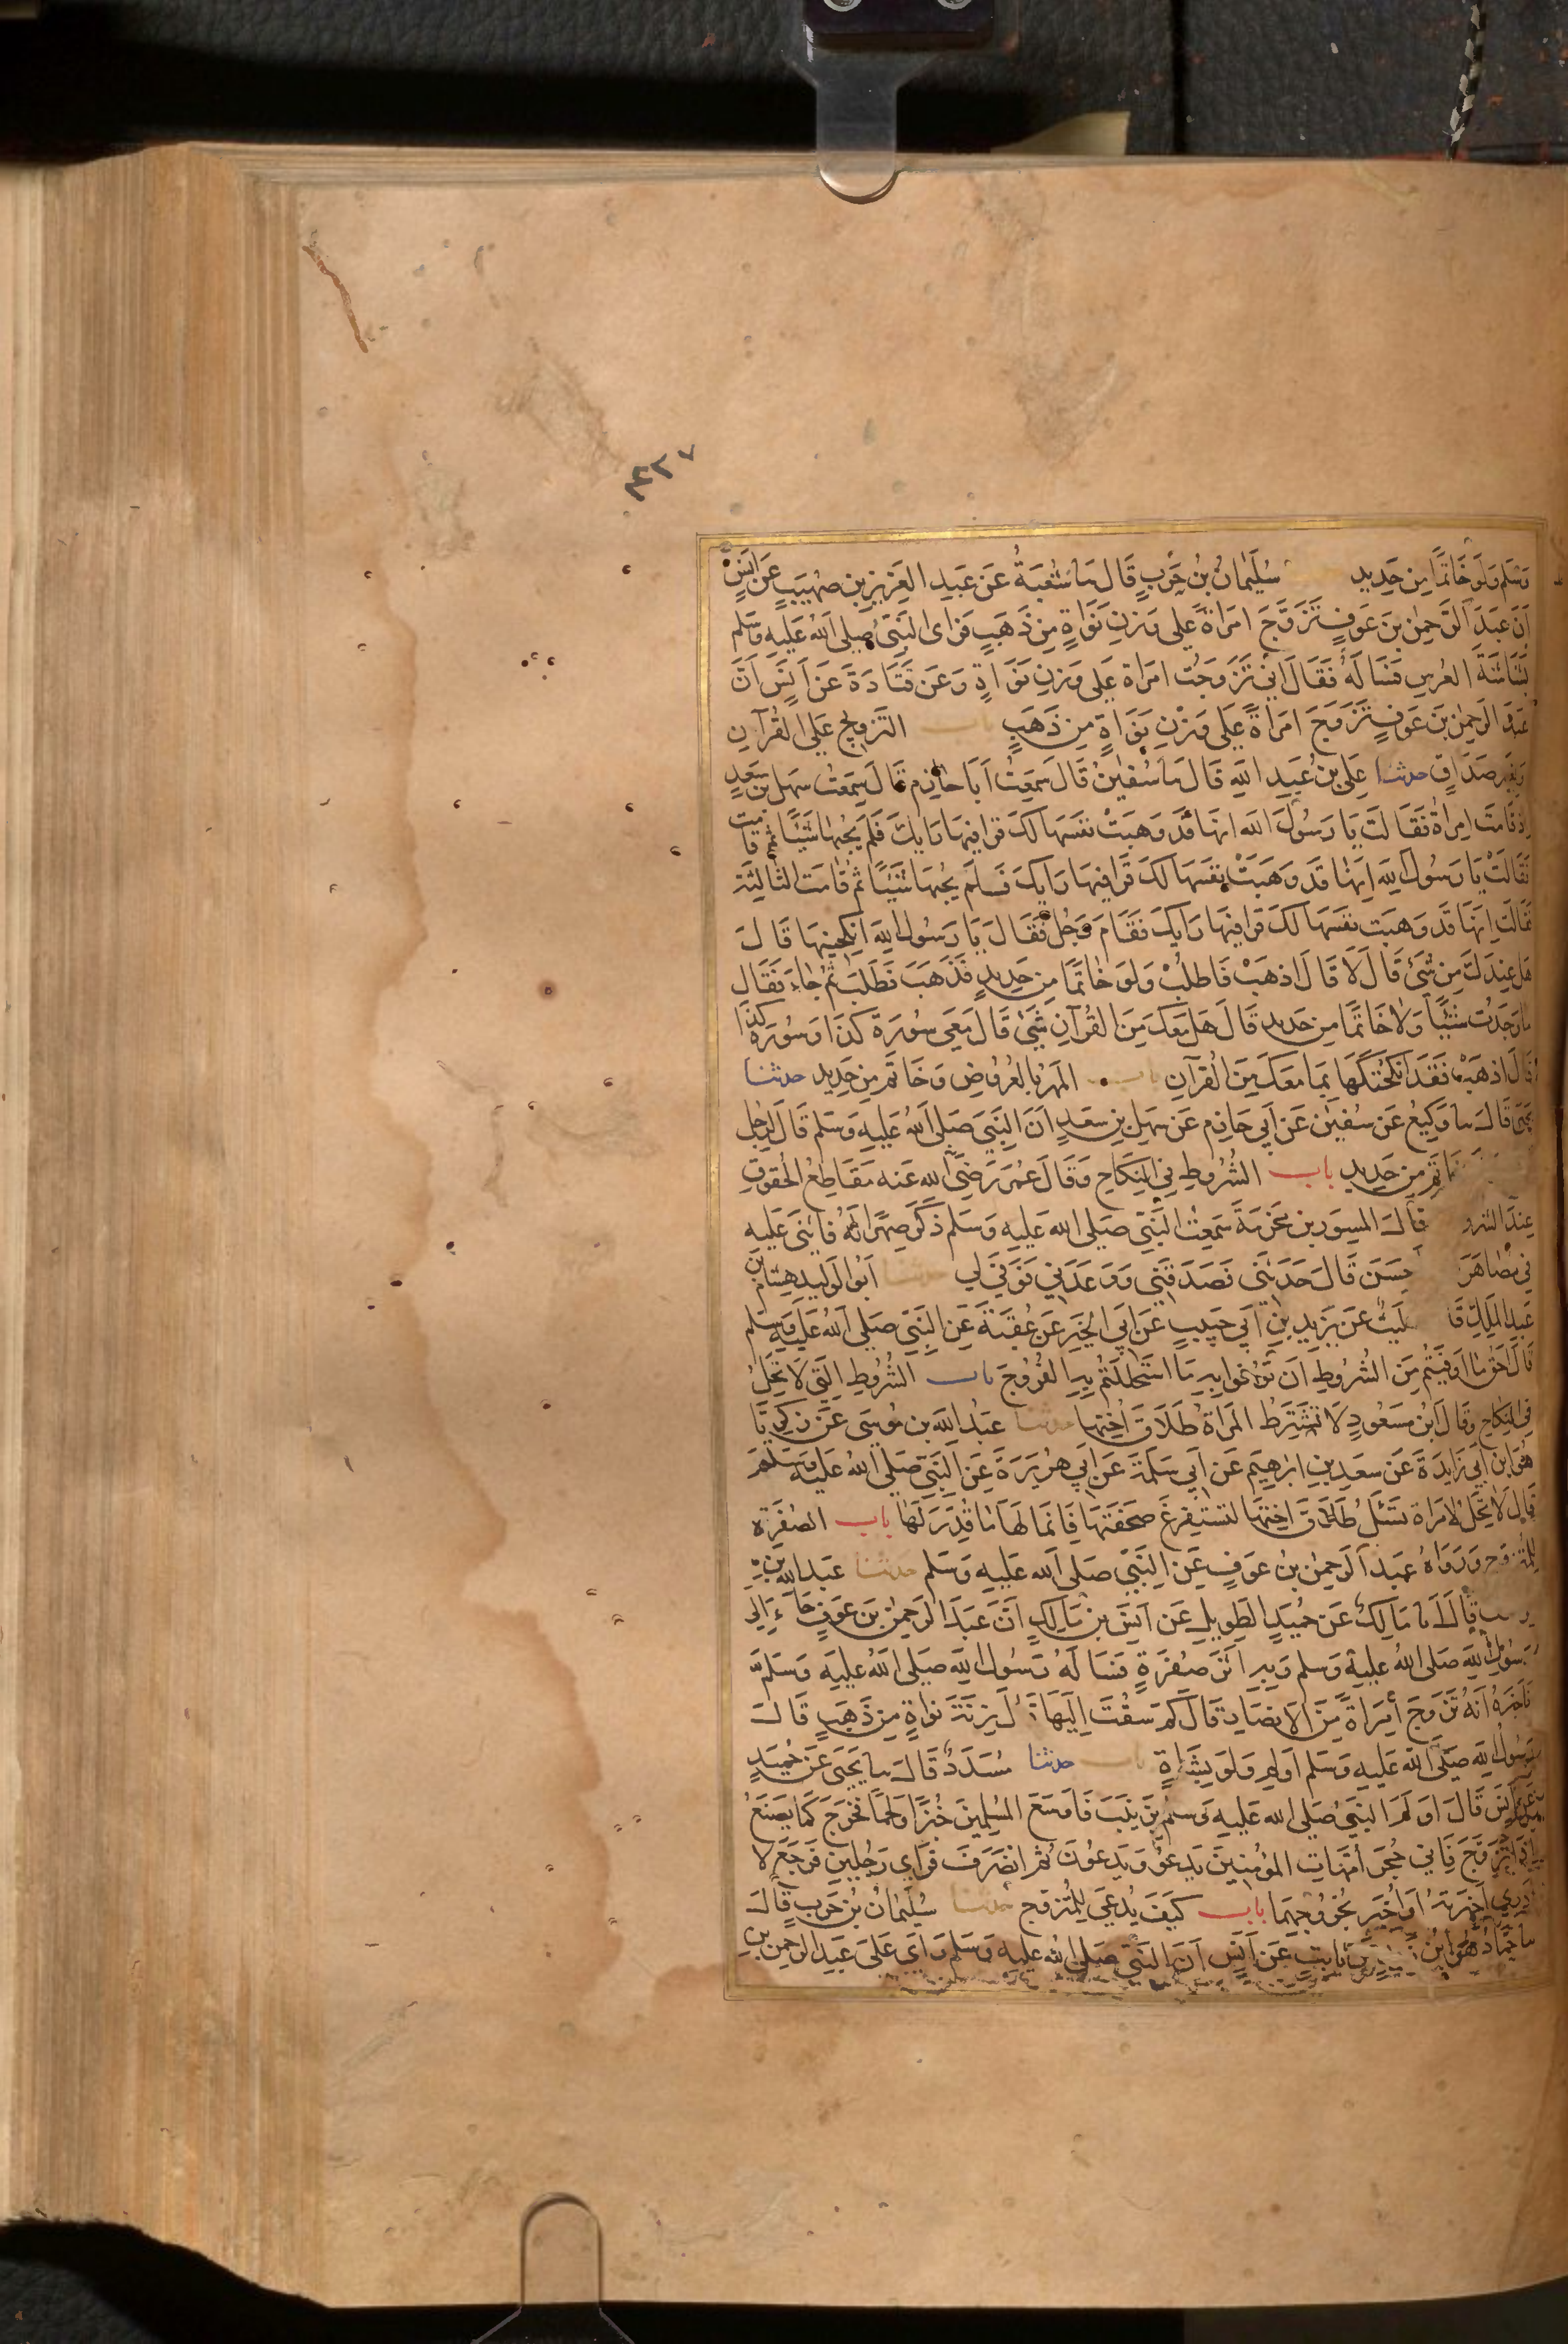 ٤٢٧
وَسَلم وَلَو خَاتمًا مِن حَدِيد سُلَيمَانُ بنُ حَربٍ قَالَ نا شُعبَةُ عَن عَبدِ العَزِيزِ بنِ صُهَيبٍ عَن اَنَسٍ
اَنَّ عَبدَ الرَّحمٰنِ بنَ عَوفٍ تَزَوَّجَ امرَاَةً عَلى وَزنِ نَوَاةٍ مِن ذَهَبٍ فَرَاى النَّبِيُّ صَلى اللهُ عَلَيهِ وَسَلم
بَشَاشَةَ العُرسِ فَسَالَهُ فَقَالَ اِنِّي تَزَوَّجتُ امرَاة عَلى وَزنِ نَوَاةٍ وَعَن قَتَادَةَ عَن اَنَسٍ اَنَّ
عَبدَ الرَحمٰنِ بنَ عَوفٍ تَزَوَّجَ امرَاَةً عَلى وَزنِ نَوَاةٍ مِن ذَهَبٍ باب التَّزوِيجِ عَلى القُرآنِ
وَبِغَيرِ صَدَاقٍ حدثنا عَلِي بنُ عَبدِ اللهِ قَالَ نا سُفيٰنُ قَالَ سَمِعتُ اَبَا حَازِمٍ قَالَ سَمِعتُ سَهلَ بنَ سَعدٍ
اِذ قَامَت امرَاةٌ فَقَالَت يَا رَسُولَ اللهِ اِنهَا قَد وَهَبَتْ نَفسَهَا لَكَ فَرَا فِيهَا رَايَكَ فَلَم يُجِبهَا شَيئًا ثُمَّ قَامَت
فَقَالَتْ يَا رَسُولَ اللهِ اِنهَا قَد وَهَبَتْ نَفسَهَا لَكَ فَرَا فِيهَا رَايَكَ فَلَم يُجِبهَا شَيئًا ثُمَّ قَامَت الثَّالِثَةَ
فَقَالَت اِنهَا قَد وَهَبَت نَفسَهَا لَكَ فَرَا فِيهَا رَايَكَ فَقَامَ رَجُلٌ فَقَالَ يَا رَسُولَ اللهِ اَنكِحنِيهَا قَالَ
هَل عِندَكَ مِن شَيْءٍ قَالَ لَا قَالَ اذهَبْ فَاطلُبْ وَلَو خَاتَمًا مِن حَدِيدٍ فَذَهَبَ فَطَلَبَ ثُمَّ جَاءَ فَقَالَ
مَا وَجَدتُ شَيئًا وَلَا خَاتَمًا مِن حَدِيدٍ قَالَ هَل مَعَكَ مِنَ القُرآنِ شَيْءٌ قَالَ مَعِي سُورَةُ كَذَا وَسُورَة كَذَا
قَالَ اذهَبْ فَقَد اَنكَحتُكَهَا بِمَا مَعَكَ مِنَ القُرآنِ باب المَهرُ بِالعُرُوضِ وَخَاتَمٍ مِن حَدِيدٍ حدثنا
يَحيَى قَالَ نا وَكِيعٌ عَن سُفيٰنَ عَن اَبِي حَازِمٍ عَن سَهلِ بنِ سَعدٍ اَنَّ النَّبِيَّ صَلى اللهُ عَلَيهِ وَسَلم قَالَ لِرَجُلٍ
بِخَاتَمٍ مِن حَدِيدٍ باب الشُّرُوطِ فِي النِّكَاحِ وَقَالَ عُمَرُ رَضِيَ اللهُ عَنه مَقَاطِعُ الحُقُوقِ
عِندَ الشرو قَالَ المِسوَر بن مَخرَمَةَ سَمِعتُ النَّبِيَّ صَلى الله عَلَيهِ وَسَلم ذَكَرَ صِهرًا لَهُ فَاَثنَى عَلَيهِ
فِي مُصَاهَرَ حسَنَ قَالَ حَدَّثَنِي فَصَدَقَنِي وَوَعَدَنِي فَوَفَى لِي حدثنا اَبُو الوَلِيدِ هِشَامُ بن
عَبدِ المَلِكِ قَا لَيثٌ عَن يَزِيدَ بنِ اَبِي حَبِيبٍ عَن اَبِي الخَيرِ عَن عُقبَةَ عَنِ النَّبِيِّ صَلى اللهُ عَلَيهِ وَسَلم
قَالَ اَحَقُّ مَا اَوفَيتُم مِنَ الشُّرُوطِ اَن تُوفُوا بِهِ مَا استَحلَلتُم بِهِ الفُرُوجَ باب الشُّرُوطِ الَّتِي لَا تَحِلُّ
فِي النِّكَاحِ وَقَالَ ابنُ مَسعُودٍ لَا تَشتَرِطُ المَرأَةُ طَلَاقَ اُختِهَا حدثنا عَبدُ اللهِ بن مُوسَى عَن زَكَرِيَّا
هُوَ ابنُ اَبِي زَايِدَةَ عَن سَعدِ بنِ اِبرٰهِيمَ عَن اَبِي سَلَمَةَ عَن اَبِي هُرَيرَةَ عَنِ النَّبِيِّ صَلى اللهُ عَلَيهِ وَسَلَم
قَالَ لَا يَحِلُّ لِامرَاة تَسئَلُ طَلَاقَ اُختِهَا لِتَستَفرِغَ صَحفَتَهَا فَاِنَّمَا لَهَا مَا قُدِّرَ لَهَا باب الصُّفرَةِ
لِلمُتَزَوِّجِ وَرَوَاهُ عَبدُ الرَحمٰنِ بنُ عَوفٍ عَنِ النَّبِيِّ صَلى الله عَلَيهِ وَسَلم حدثنا عَبدُ الله بن
يوسف قَالَ نا مَالِكٌ عَن حُمَيدٍ الطَوِيلِ عَن اَنَسِ بنِ مَالِكٍ اَنَّ عَبدَ الرَحمٰنِ بنَ عَوفٍ جَاءَ اِلى
رَسُولِ اللهِ صَلى اللهُ عَلَيهِ وَسَلم وَبِهِ اَثَرُ صُفرَةٍ فَسَالَهُ رَسُولُ اللهِ صَلى اللهُ عَلَيهِ وَسَلَّمَ
فَاَخبَرَهُ اَنَّهُ تَزَوَّجَ اَمرَاةً مِنَ الاَنصَارِ قَالَ كَم سُقتَ اِلَيهَا قَالَ زِنَةَ نَوَاةٍ مِن ذَهَبٍ قَالَ
رَسُولُ اللهِ صَلَّى اللهُ عَلَيهِ وَسَلم اَولِم وَلَو بِشَاةٍ باب حدثنا مُسَدَّدٌ قَالَ نا يَحيَى عَن حُمَيدٍ
عَن اَنَسٍ قَالَ اَولَمَ النَّبِيُّ صَلى الله عَلَيهِ وَسلم بِزَينَبَ فَاَوسَعَ المُسلِمِينَ خُبزًا وَلَحمًا فَخَرَجَ كَمَا يَصنَعُ
اِذَا تَزَوَّجَ فَاَتى حُجَرَ اُمَّهَاتِ المُؤمِنِينَ يَدعُو وَيَدعُونَ ثُمَّ انصَرَفَ فَرَاى رَجُلَينِ فَرَجَعَ لَا
اَدرِي اَخبَرتُهُ اَو اُخبِرَ بِخُرُوجِهِمَا باب كَيفَ يُدعَى لِلمُتَزَوِّجِ حدثنا سُلَيمَانُ بنُ حَربٍ قَالَ
نا حَمَّادٌ هُوَ ابنُ ثَابِتٍ عَن اَنَسٍ اَنَّ النَّبِيَّ صَلى اللهُ عَلَيهِ وَسَلم رَاَى عَلَى عَبدِ الرَحمٰنِ بنِ